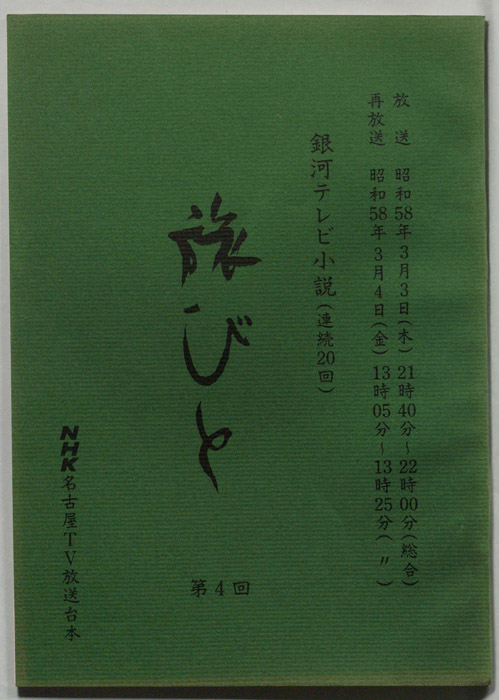 放送 昭和58年3月3日(木) 21時40分~22時00分(総合)
再放送 昭和58年3月4日(金) 13時05分~13時25分( 〃 )
銀河テレビ小説(連続20回)
旅びと
第4回
NHK名古屋TV放送台本